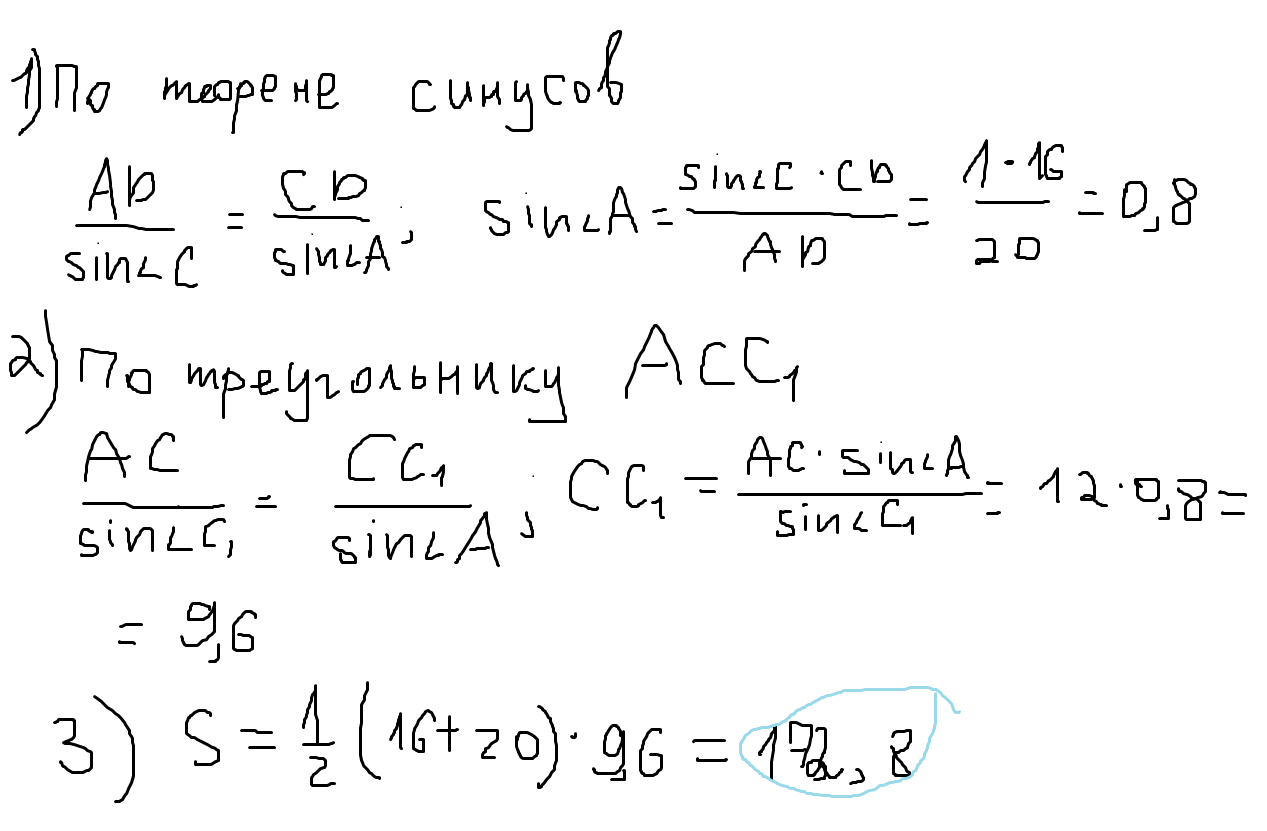 1) По теорене синусов
AD/sin∠C = CD/sin∠A; sin∠A = sin∠C · CD/AD = 1 · 16/20 = 0,8
2) По треугольнику ACC₁
AC/sin∠C₁ = CC₁/sin∠A; CC₁ = AC · sin∠A/sin∠C₁ = 12 · 0,8 =
= 9,6
3) S = 1/2 (16+20) · 9,6 = 172,8